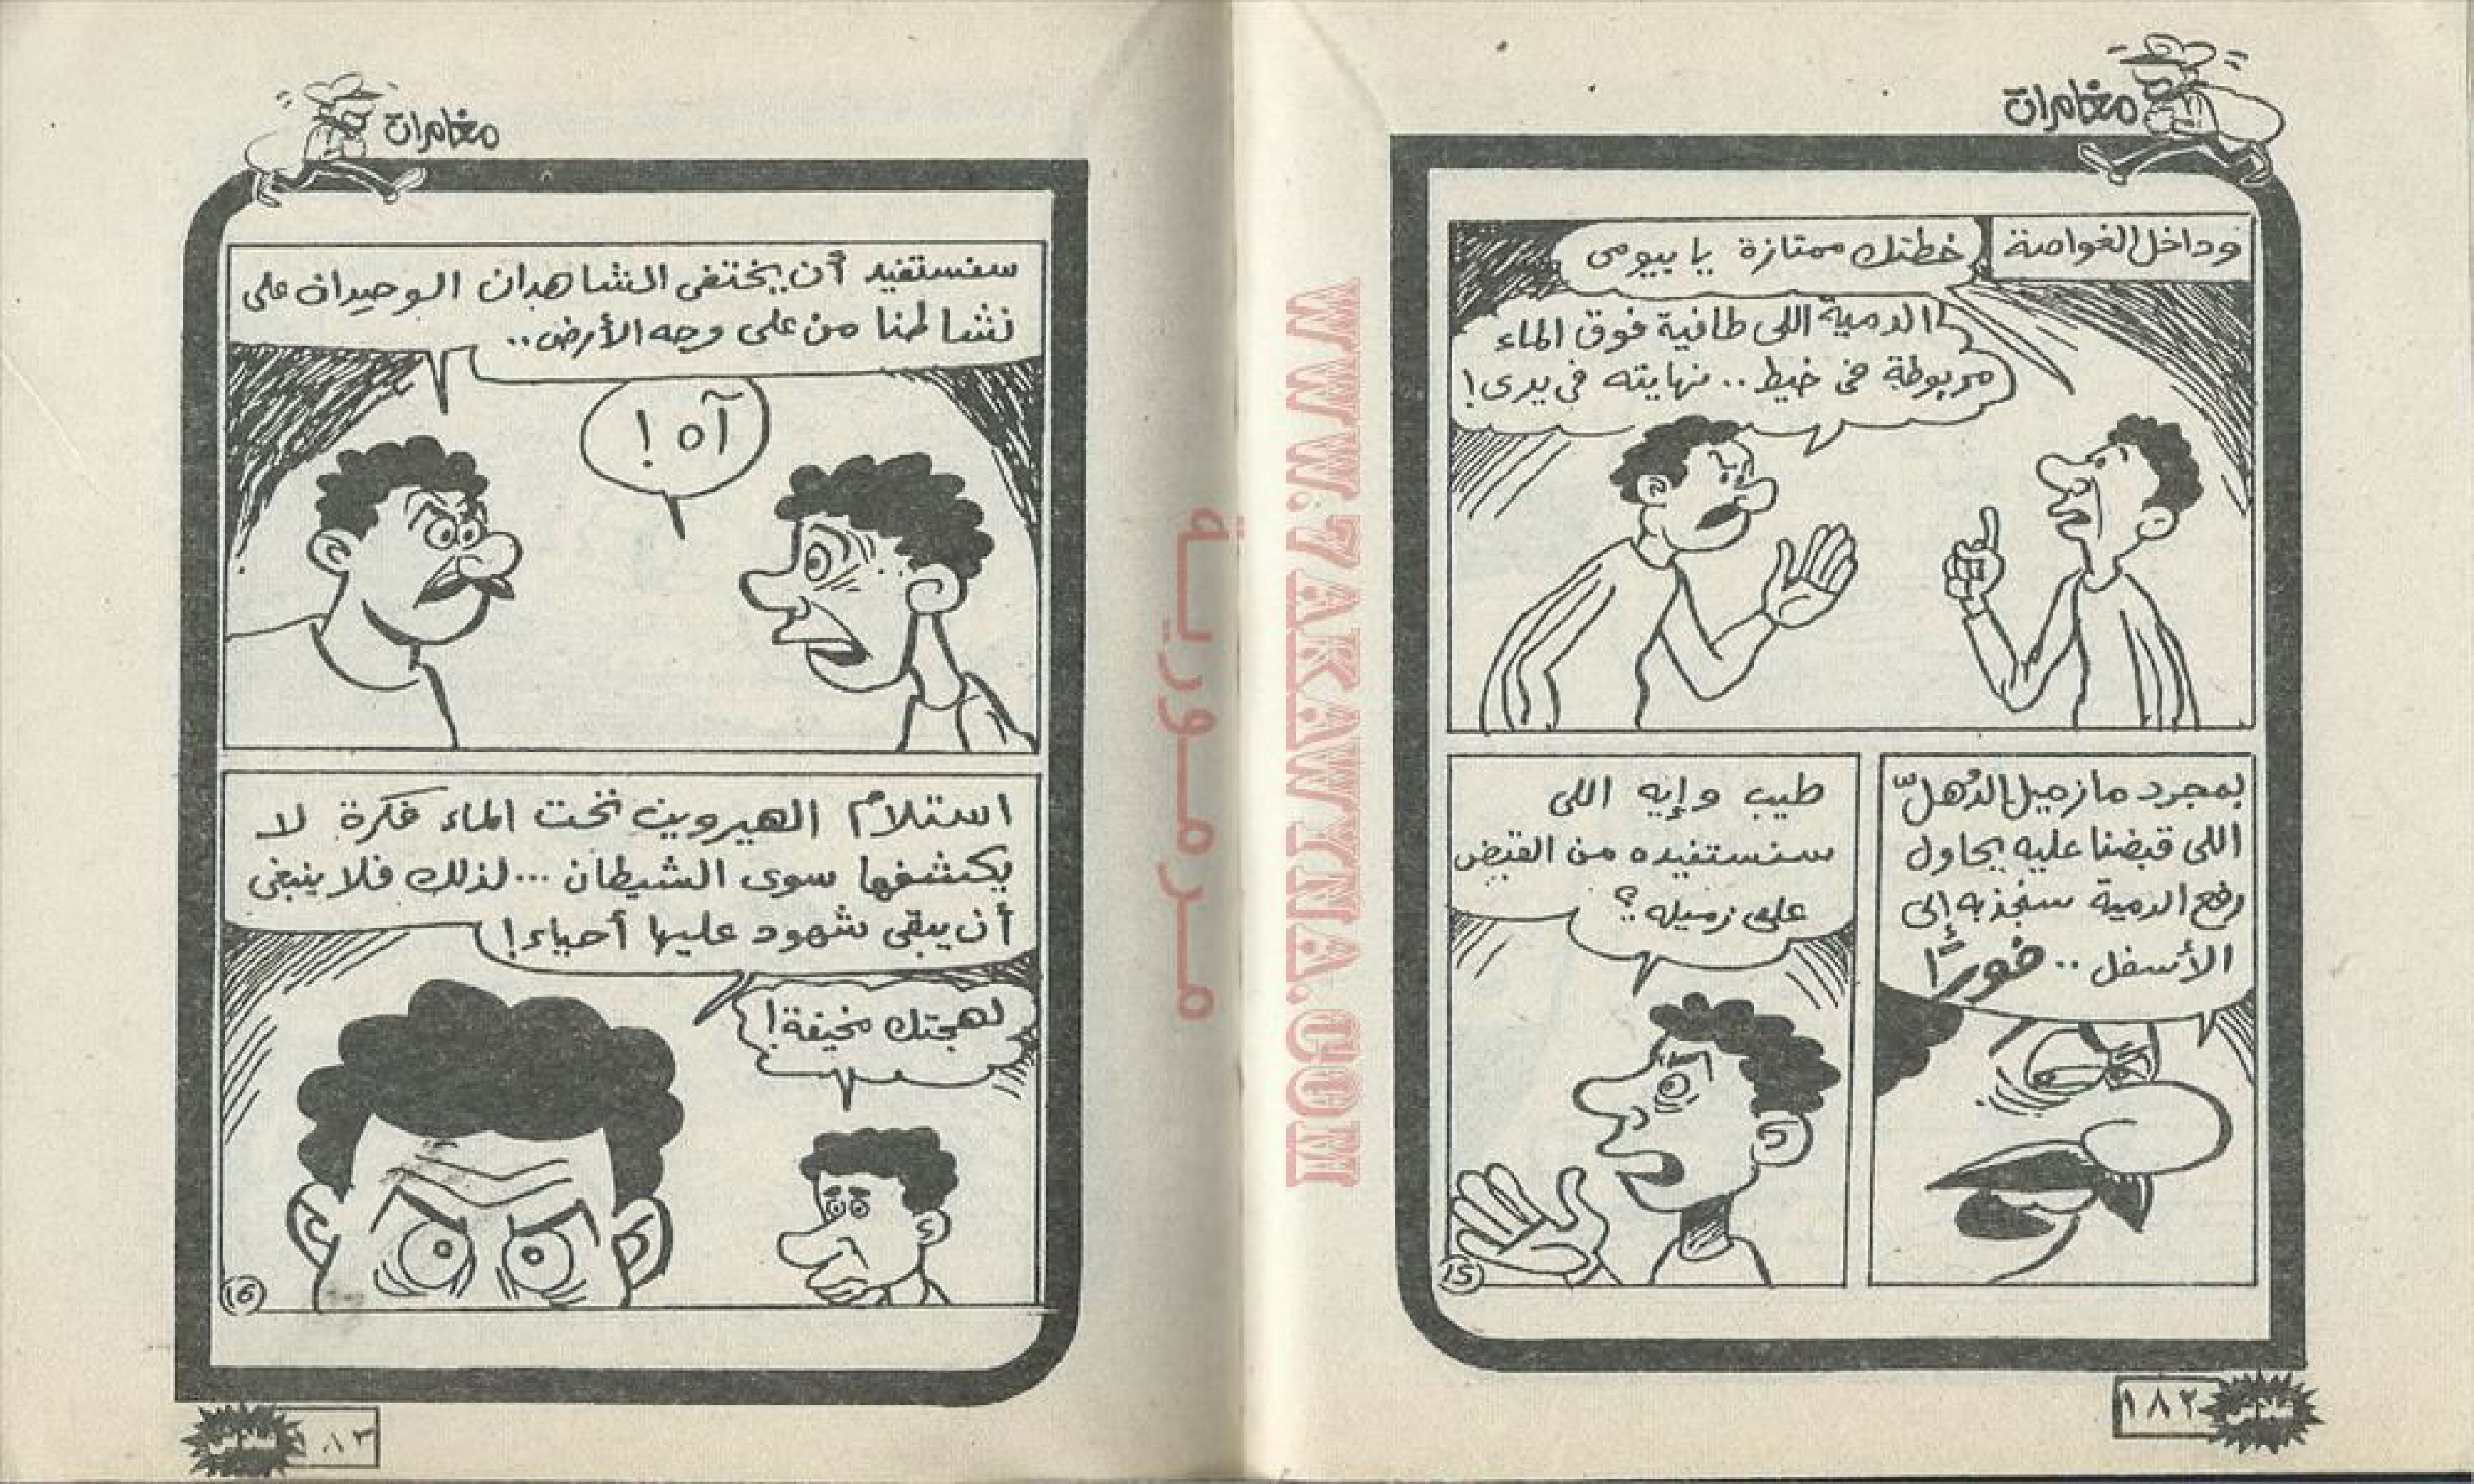 مغامرات
وداخل الغواصة
خطتك ممتازة يا بيومى
الدمية اللى طافية فوق الماء
مربوطة فى خيط.. نهايته فى يدى!
بمجرد ما زميل الدهلّ
اللى قبضنا عليه يحاول
رفع الدمية سنجذبه إلى
الأسفل .. فورًا
طيب وإيه اللى
سنستفيده من القبض
على زميله؟
15
١٨٢
WWW.7AKAWYNA.COM
مرمورية
مغامرات
سنستفيد أن يختفى الشاهدان الوحيدان على
نشاطنا من على وجه الأرض..
آه!
استلام الهيروين تحت الماء فكرة لا
يكتشفها سوى الشيطان ...لذلك فلا ينبغى
أن يبقى شهود عليها أحياء!
لهجتك مخيفة!
16
١٨٣